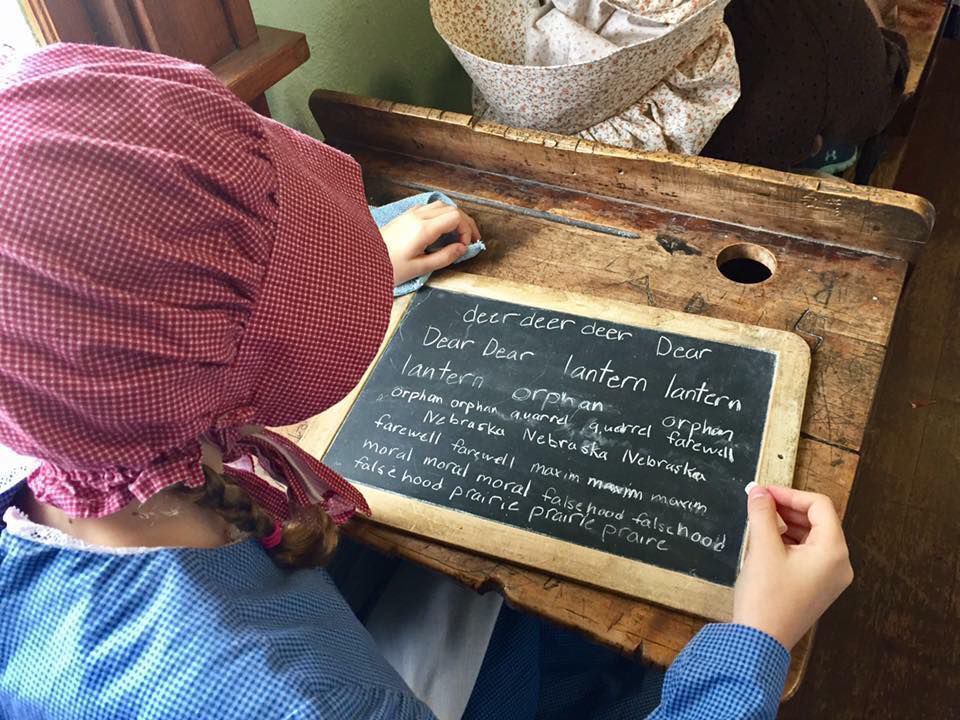 deer deer deer Dear
Dear Dear lantern lantern
lantern orphan orphan
orphan orphan quarrel quarrel farewell
Nebraska Nebraska Nebraska
farewell farewell maxim maxim maxim
moral moral moral falsehood falsehood
falsehood prairie prairie praire